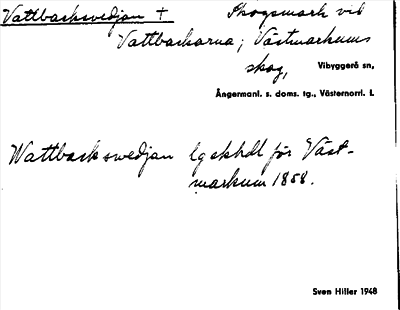 Vattbacksvedjan † Skogsmark vid
Vattbackarna; Västmarkums
skog, Vibyggerå sn,
Ångermanl. s. doms. tg., Västernorrl. l.
Wattbackswedjan lgskhdl för Väst-
markum 1858.
Sven Hiller 1948